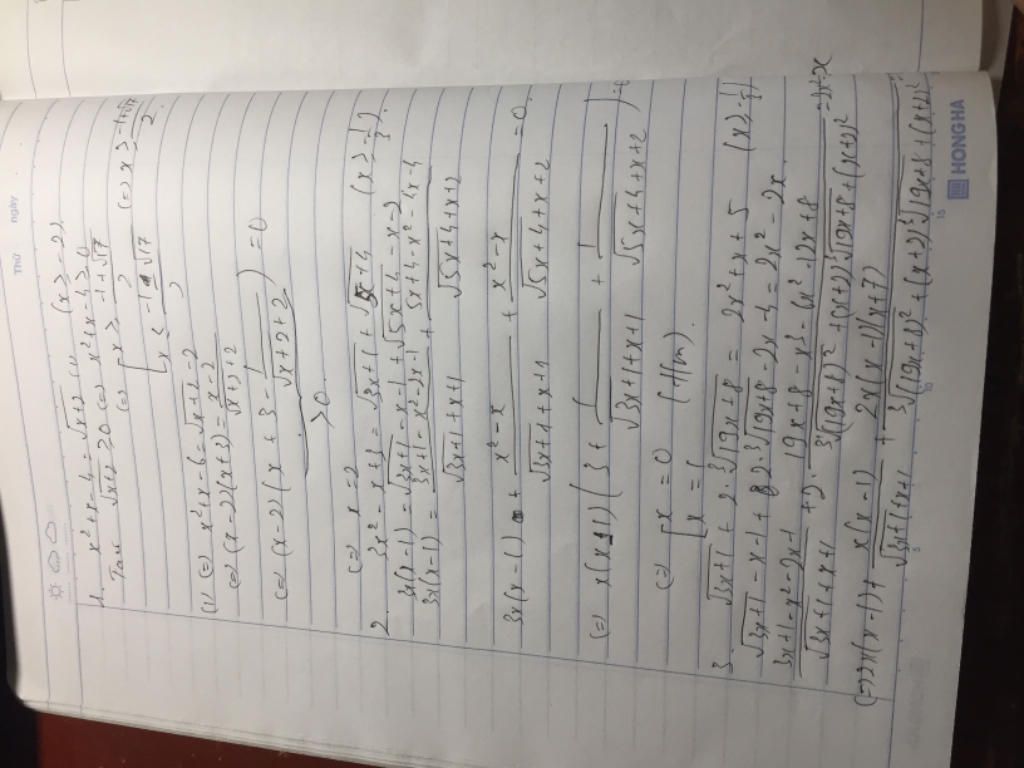 Thứ
ngày
1. x²+x-4 = √(x+2) (1) (x ≥ -2)
Ta có √(x+2) ≥ 0 (=) x²+x-4 ≥ 0
(=) [ x ≥ (-1+√17)/2 (=) x ≥ (-1+√17)/2
x ≤ (-1-√17)/2
(1) (=) x²+x-6 = √(x+2) -2
(=) (x-2)(x+3) = (x-2)/(√(x+2)+2)
(=) (x-2)(x+3 - 1/(√(x+2)+2)) = 0
>0
(=) x = 2
2. 3x²-x+3 = √(3x+1) + √(5x+4) (x ≥ -1/3)
3x(x-1) = √(3x+1) -x-1 + √(5x+4) -x-2
3x(x-1) = (3x+1-x²-2x-1)/(√(3x+1)+x+1) + (5x+4-x²-4x-4)/(√(5x+4)+x+2)
3x(x-1) + (x²-x)/(√(3x+1)+x+1) + (x²-x)/(√(5x+4)+x+2) = 0
(=) x(x-1)(3 + 1/(√(3x+1)+x+1) + 1/(√(5x+4)+x+2)) = 0
(=) [ x = 0
x = 1 (t/m)
3. √(3x+1) + 2.∛(19x+8) = 2x²+x+5 (x ≥ -1/3)
√(3x+1) -x-1 + 2.∛(19x+8) -2x-4 = 2x²-2x
(3x+1-x²-2x-1)/(√(3x+1)+x+1) + 2.(19x+8-x³-6x²-12x-8)/(∛(19x+8)²+(x+2)∛(19x+8)+(x+2)²) = 2x²-2x
(=) 2x(x-1) + x(x-1)/(√(3x+1)+x+1) + 2x(x-1)(x+7)/(∛(19x+8)²+(x+2)∛(19x+8)+(x+2)²)
5
10
15
HONG HA